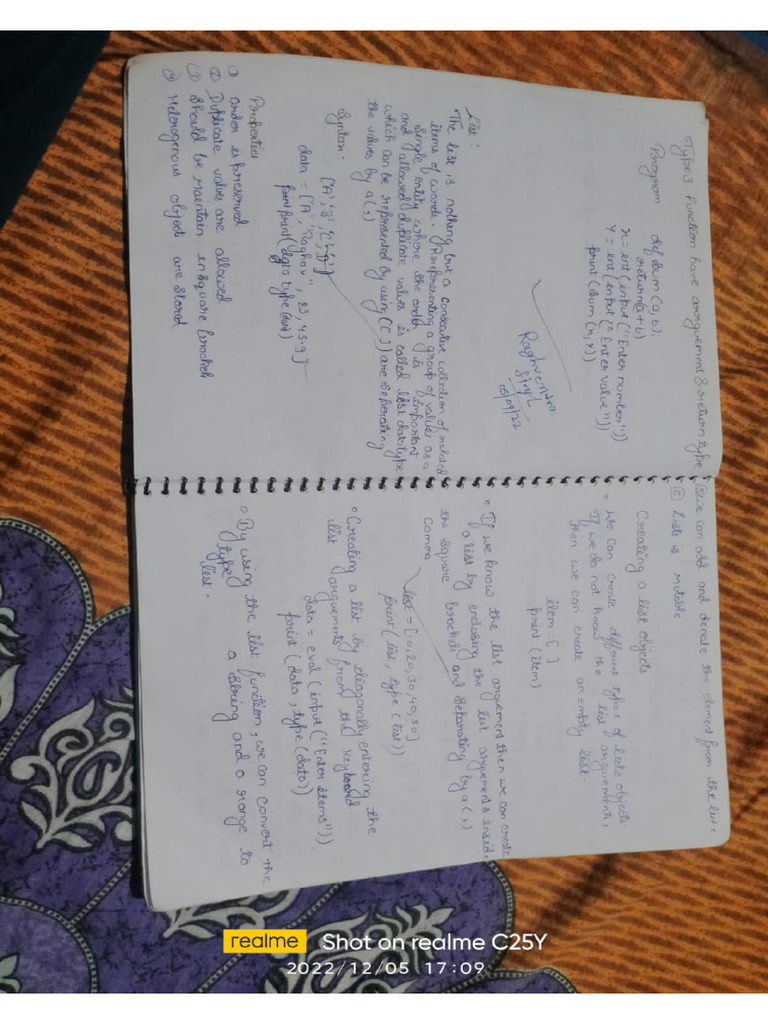 Type 3 Function have arrguement & return type
Program
def sum(a,b):
return(a+b)
x = int(input("Enter number"))
Y = int(input("Enter value"))
print(sum(x,Y))
Raghvendra
Singh
05/09/22
List:
The list is nothing but a consecutive collection of related
items of words. (A representing a group of values as a
single entity where the order is important
and allowed duplicate values is called list datatype
which can be represented by using [ ] are seperating
the values by a (,)
Syntax:
['A','B','C','D']
data = ['A', "Raghav", 23, 45.9]
print(type(data))
Properties
① order is preserved
② Duplicate values are allowed
③ Should be maintain in square bracket
④ Heterogenous object are stored
we can add and delete the element from the list.
⑥ List is mutable
Creating a list objects
• We can create different types of lists objects.
If we do not know the list arguements,
then we can create an empty list.
item = [ ]
print (item)
• If we know the list arguement then we can create
a list by enclosing the list arguements insid.
the square bracket and separating by a (,)
comma
list = [10,20,30,40,50]
print(list, type(list))
• Creating a list by diagonally entering the
list arguements from the keyboard.
data = eval(input("Enter items"))
print (data, type(data))
• By using the list function, we can convert the
type a string and a range to
list.
realme Shot on realme C25Y
2022/12/05 17:09